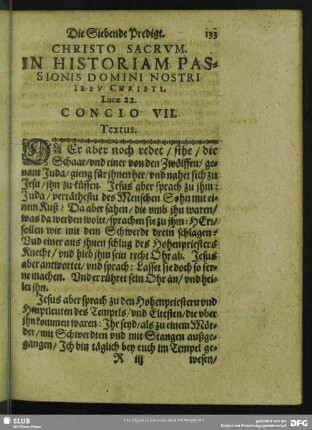 Die Siebende Predigt. 133
CHRISTO SACRVM.
IN HISTORIAM PAS-
SIONIS DOMINI NOSTRI
IESV CHRISTI.
Lucæ 22.
CONCIO VII.
Textus.
DA Er aber noch redet / sihe / die
Schaar / vnd einer von den Zwölffen / ge-
nant Juda / gieng für ihnen her / vnd nahet sich zu
Jesu / ihn zu küssen. Jesus aber sprach zu ihm:
Juda / verräthestu des Menschen Sohn mit ei-
nem Kuß? Da aber sahen / die vmb ihn waren /
was da werden wolte / sprachen sie zu jhm: HErr /
sollen wir mit dem Schwerdt drein schlagen?
Vnd einer aus jhnen schlug des Hohenpriesters
Knecht / vnd hieb jhm sein recht Ohr ab. Jesus
aber antwortet / vnd sprach: Lasset sie doch so fer-
ne machen. Vnd er rühret sein Ohr an / vnd hei-
let jhn.
Jesus aber sprach zu den Hohenpriestern vnd
Heuptleuten des Tempels / vnd Eltesten / die vber
jhn kommen waren: Ihr seyd / als zu einem Mör-
der / mit Schwerdten vnd mit Stangen außge-
gangen / Ich bin täglich bey euch im Tempel ge-
R iij wesen /
SLUB
DFG